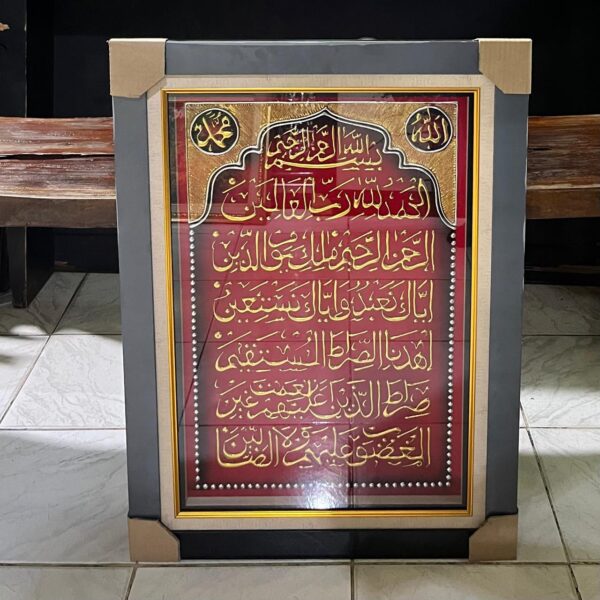 الله
محمد
بسم الله الرحمن الرحيم
الحمد لله رب العالمين
الرحمن الرحيم ملك يوم الدين
إياك نعبد وإياك نستعين
اهدنا الصراط المستقيم
صراط الذين أنعمت عليهم غير
المغضوب عليهم ولا الضالين